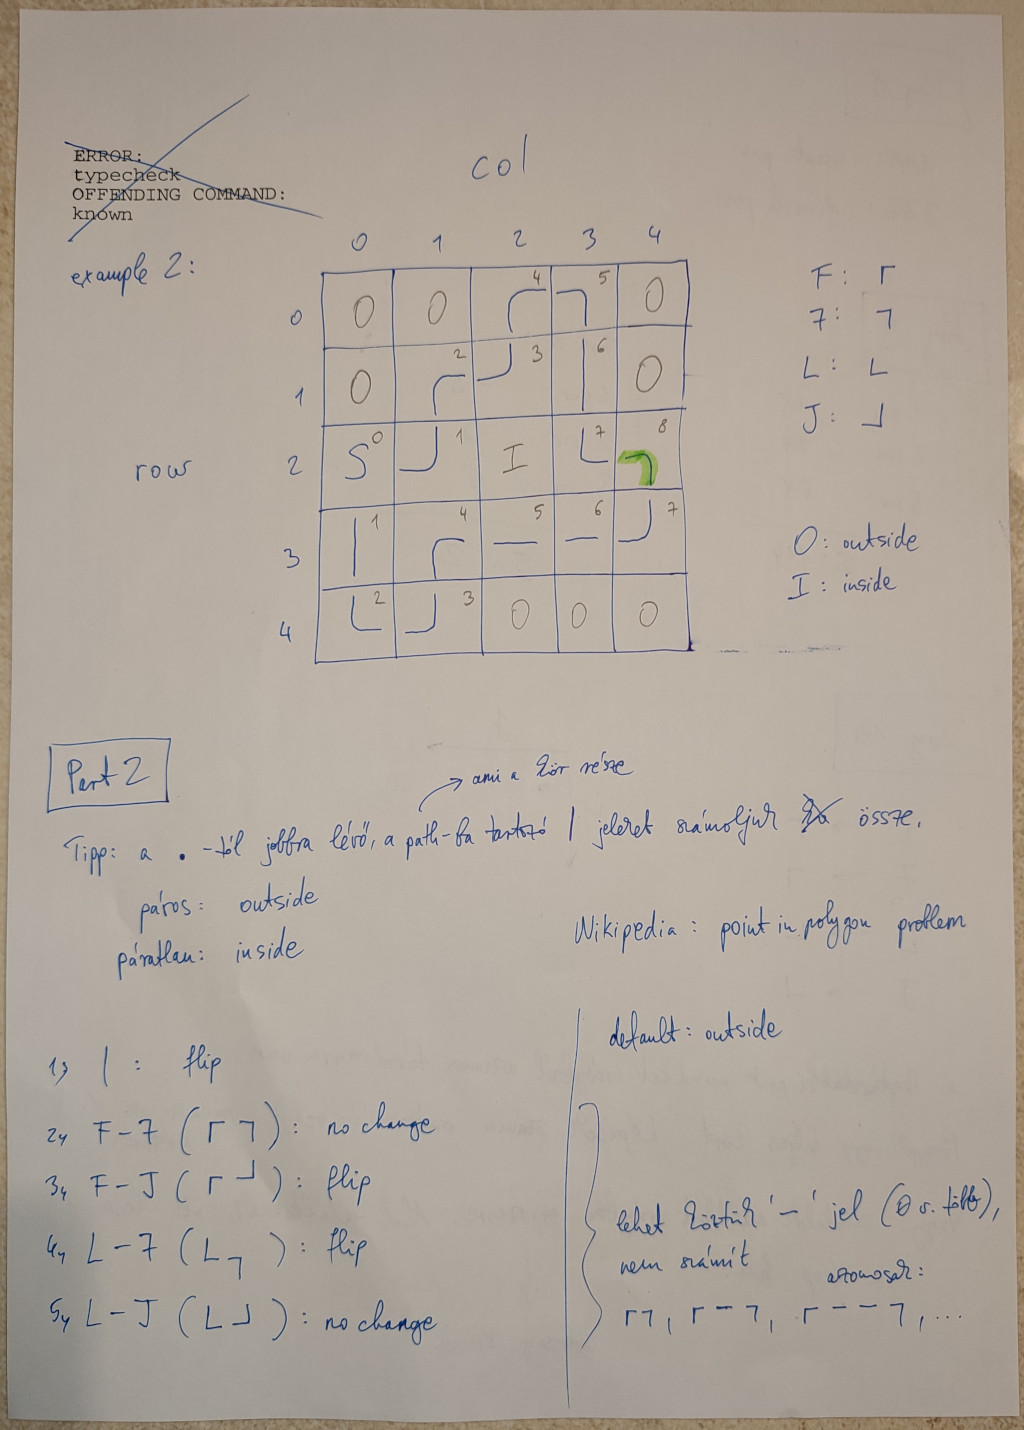 ERROR:
typecheck
OFFENDING COMMAND:
known
col
example 2:
0 1 2 3 4
0 O O ┌ 4 ┐ 5 O
1 O ┌ 2 ┘ 3 | 6 O
row
2 S 0 ┘ 1 I └ 7 ┐ 8
3 | 1 ┌ 4 — 5 — 6 ┘ 7
4 └ 2 ┘ 3 O O O
F: ┌
7: ┐
L: └
J: ┘
O: outside
I: inside
Part 2
→ ami a kör része
Tipp: a . -tól jobbra lévő, a path-ba tartozó | jeleket számoljuk össze.
páros: outside
páratlan: inside
Wikipedia: point in polygon problem
default: outside
1, | : flip
2, F-7 (┌ ┐): no change
3, F-J (┌ ┘): flip
4, L-7 (└ ┐): flip
5, L-J (└ ┘): no change
lehet köztük '-' jel (0 v. több),
nem számít
azonosak:
┌┐, ┌-┐, ┌--┐, ...